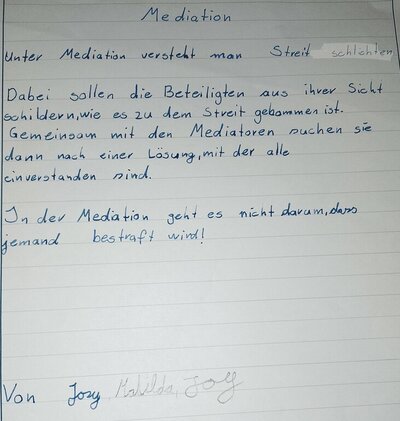 Mediation
Unter Mediation versteht man Streit schlichten
Dabei sollen die Beteiligten aus ihrer Sicht
schildern, wie es zu dem Streit gekommen ist.
Gemeinsam mit den Mediatoren suchen sie
dann nach einer Lösung, mit der alle
einverstanden sind.
In der Mediation geht es nicht darum, dass
jemand bestraft wird!
Von Josy, Mathilda, Joy